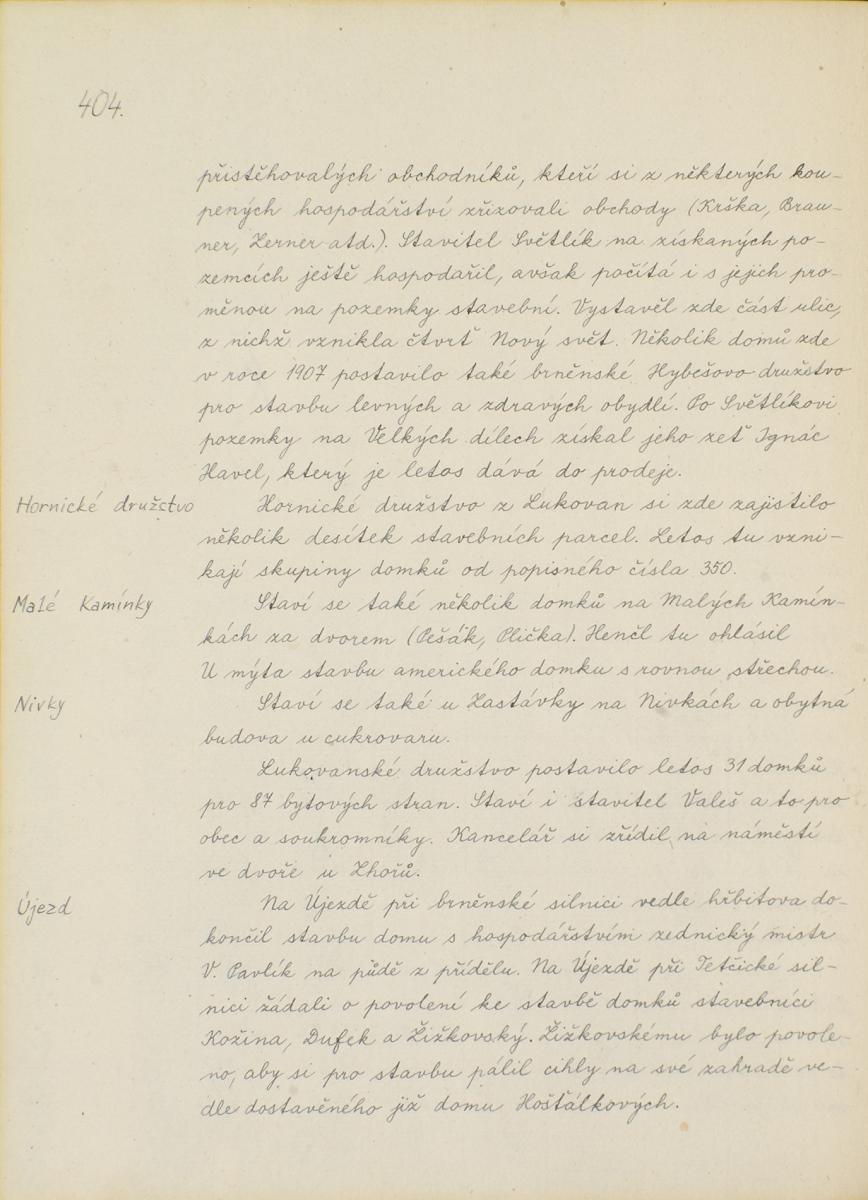 404.
přistěhovalých obchodníků, kteří si z některých kou-
pených hospodářství zřizovali obchody (Krška, Brau-
ner, Zerner atd.). Stavitel Světlík na získaných po-
zemcích ještě hospodařil, avšak počítá i s jejich pro-
měnou na pozemky stavební. Vystavěl zde část ulic,
z nichž vznikla čtvrť Nový svět. Několik domů zde
v roce 1907 postavilo také brněnské Hybešovo družstvo
pro stavbu levných a zdravých obydlí. Po Světlíkovi
pozemky na Velkých dílech získal jeho zeť Ignác
Havel, který je letos dává do prodeje.
Hornické družstvo
Hornické družstvo z Lukovan si zde zajistilo
několik desítek stavebních parcel. Letos tu vzni-
kají skupiny domků od popisného čísla 350.
Malé Kamínky
Staví se také několik domků na Malých Kamín-
kách za dvorem (Pešák, Plička). Henčl tu ohlásil
U mýta stavbu amerického domku s rovnou střechou.
Nivky
Staví se také u Zastávky na Nivkách a obytná
budova u cukrovaru.
Lukovanské družstvo postavilo letos 31 domků
pro 87 bytových stran. Staví i stavitel Valeš a to pro
obec a soukromníky. Kancelář si zřídil na náměstí
ve dvoře u Zhořů.
Újezd
Na Újezdě při brněnské silnici vedle hřbitova do-
končil stavbu domu s hospodářstvím zednický mistr
V. Pavlík na půdě z přídělu. Na Újezdě při Tetčické sil-
nici žádali o povolení ke stavbě domků stavebníci
Kožina, Dufek a Žižkovský. Žižkovskému bylo povole-
no, aby si pro stavbu pálil cihly na své zahradě ve-
dle dostavěného již domu Hošťálkových.